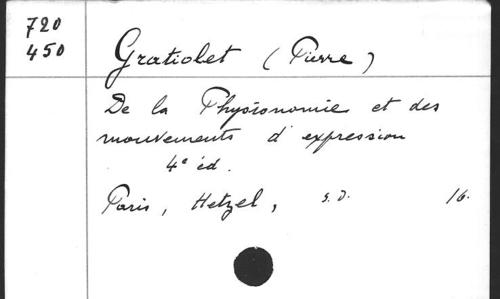 720
450
Gratiolet (Pierre)
De la Physionomie et des
mouvements d'expression
4e éd.
Paris, Hetzel, s.d. 16.